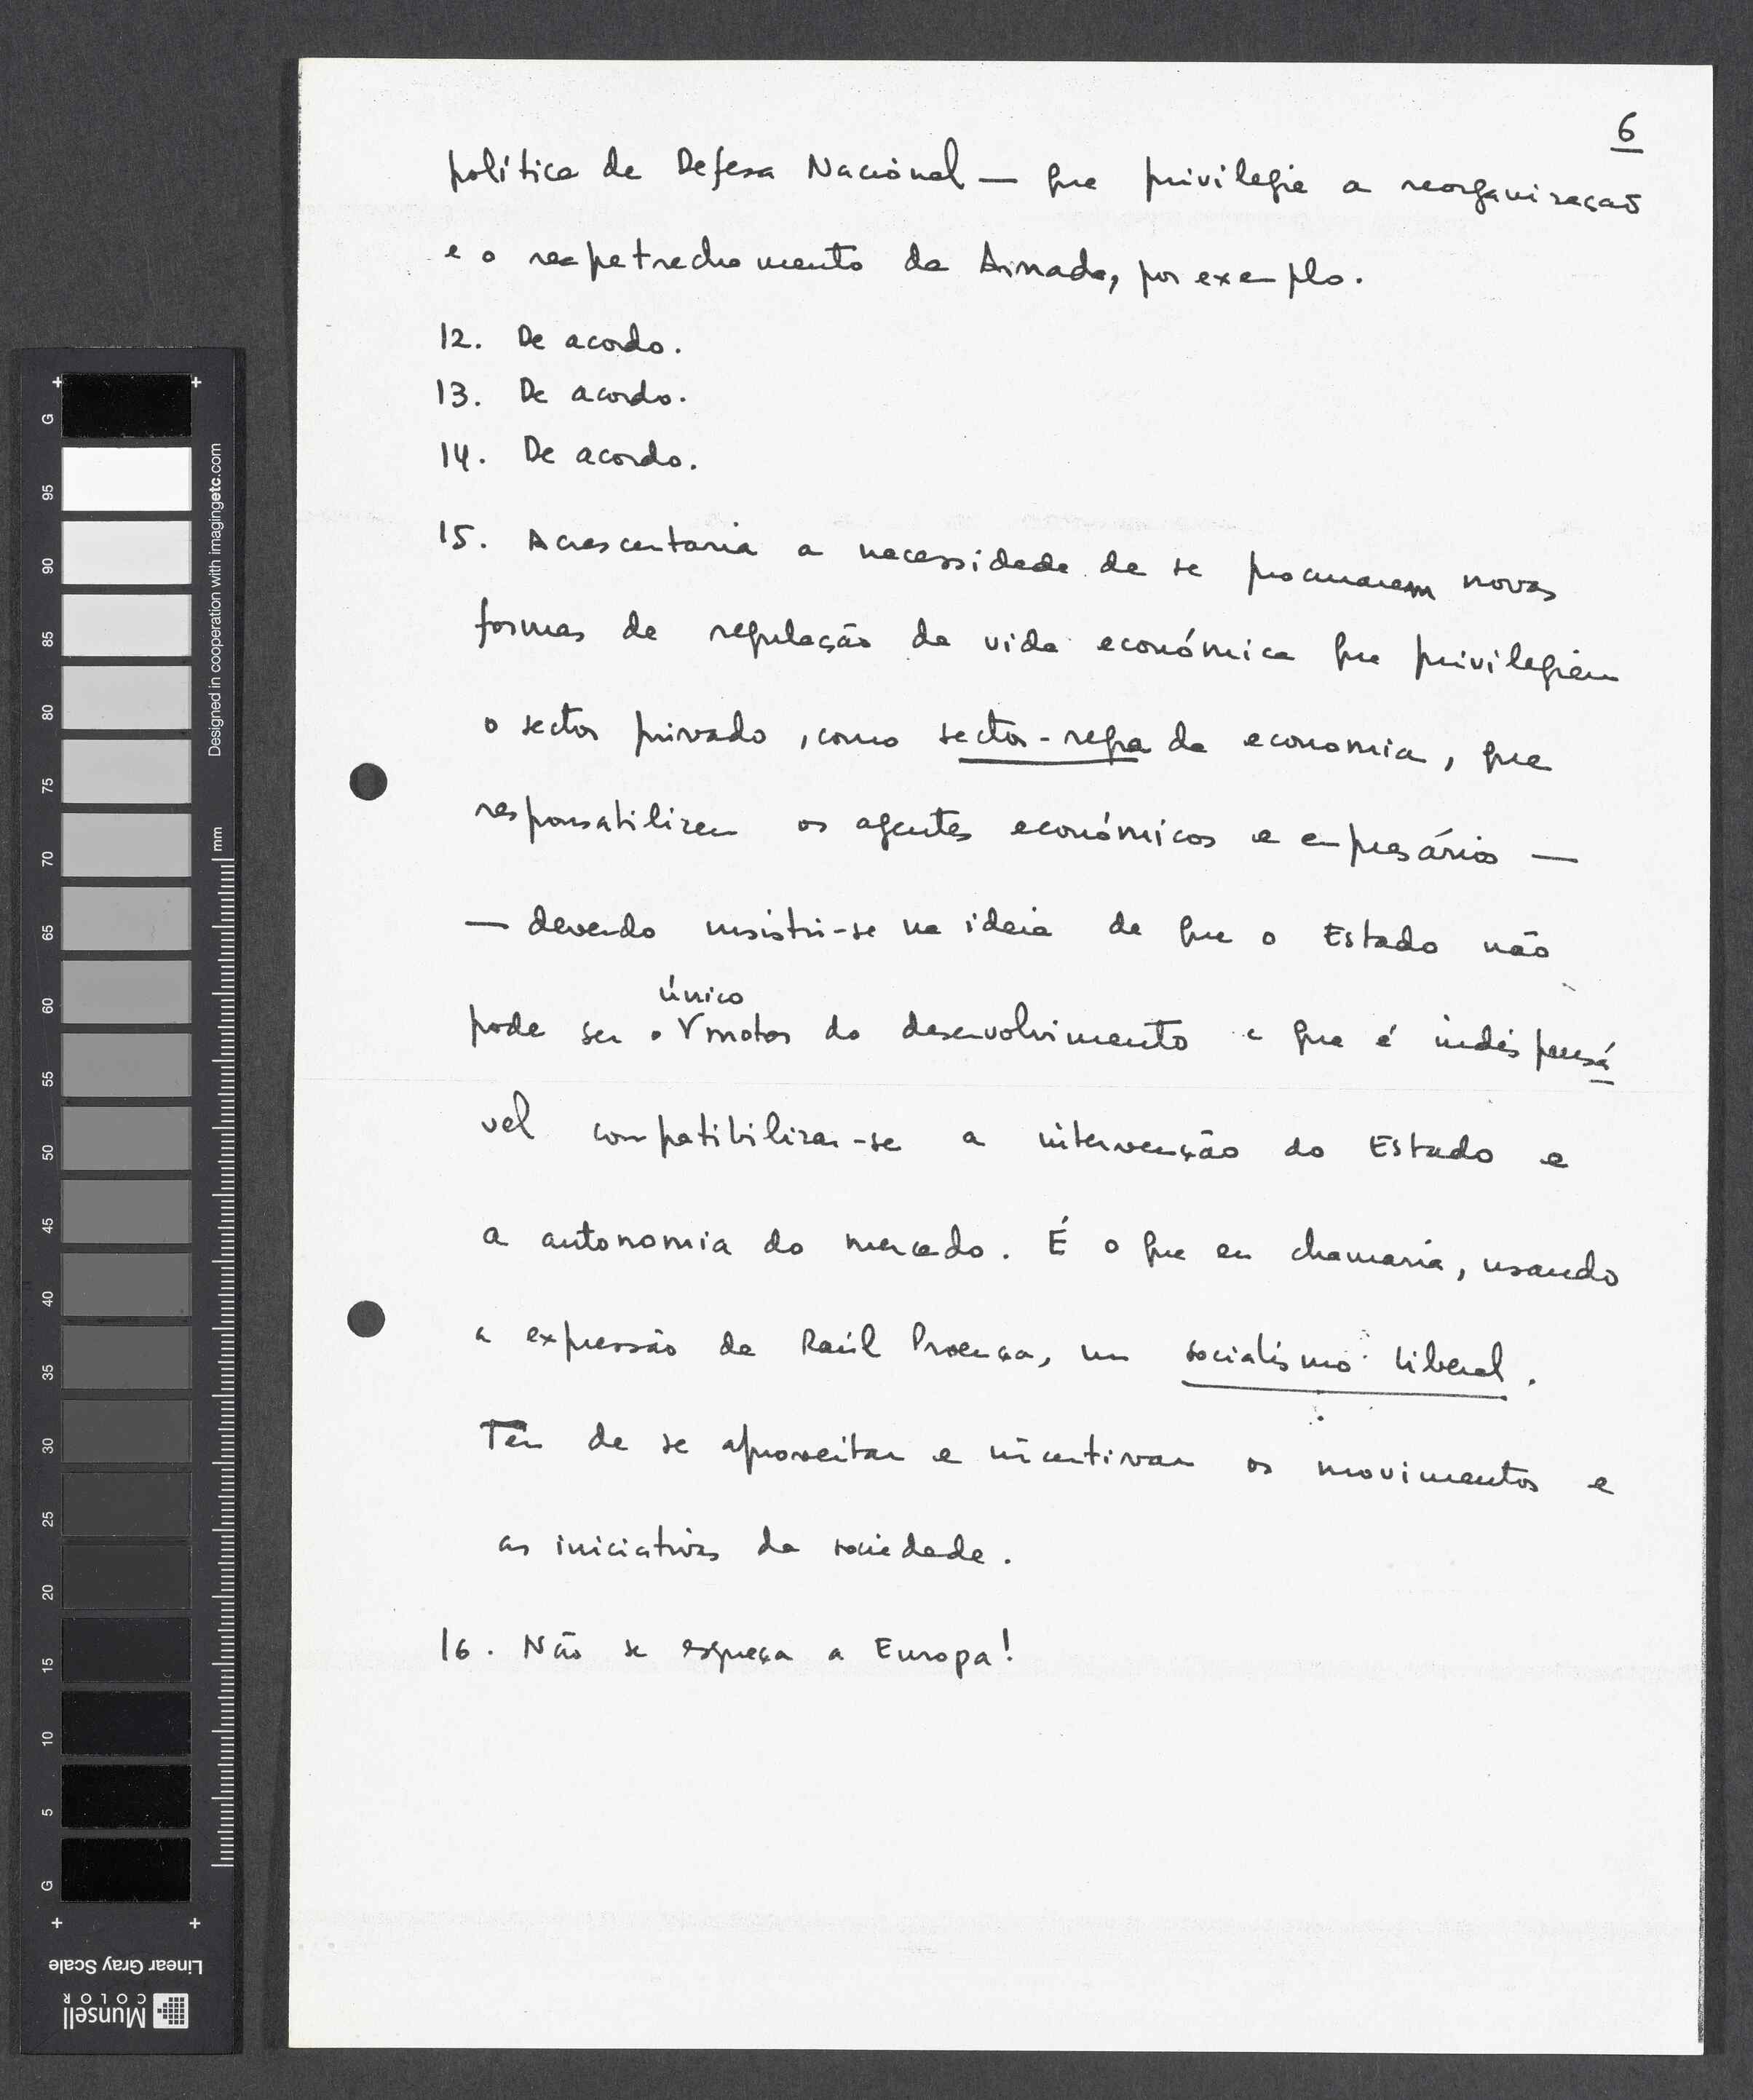 6
política de Defesa Nacional — que privilegie a reorganização
e o reapetrechamento da Armada, por exemplo.
12. De acordo.
13. De acordo.
14. De acordo.
15. Acrescentaria a necessidade de se procurarem novas
formas de regulação da vida económica que privilegiem
o sector privado, como sector-regra da economia, que
responsabilizem os agentes económicos e empresários —
— devendo insistir-se na ideia de que o Estado não
único
pode ser o V motor do desenvolvimento e que é indispensá
vel compatibilizar-se a intervenção do Estado e
a autonomia do mercado. É o que eu chamaria, usando
a expressão de Raúl Proença, um socialismo liberal.
Tem de se aproveitar e incentivar os movimentos e
as iniciativas da sociedade.
16. Não se esqueça a Europa!
G
95
90
85
80
75
70
65
60
55
50
45
40
35
30
25
20
15
10
5
G
Designed in cooperation with imagingetc.com
mm
Linear Gray Scale
Munsell
COLOR